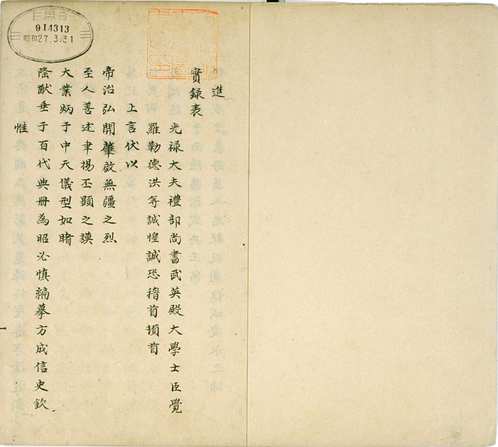 914313
昭和27.3.31
進
實録表
光禄大夫禮部尚書武英殿大學士臣覺
羅勒德洪等誠惶誠恐稽首頓首
上言伏以
帝治弘開肇啟無疆之烈
至人善述聿揚丕顯之謨
大業炳于中天儀型如睹
隂猷垂于百代典冊為昭必慎編摹方成信史欽
惟